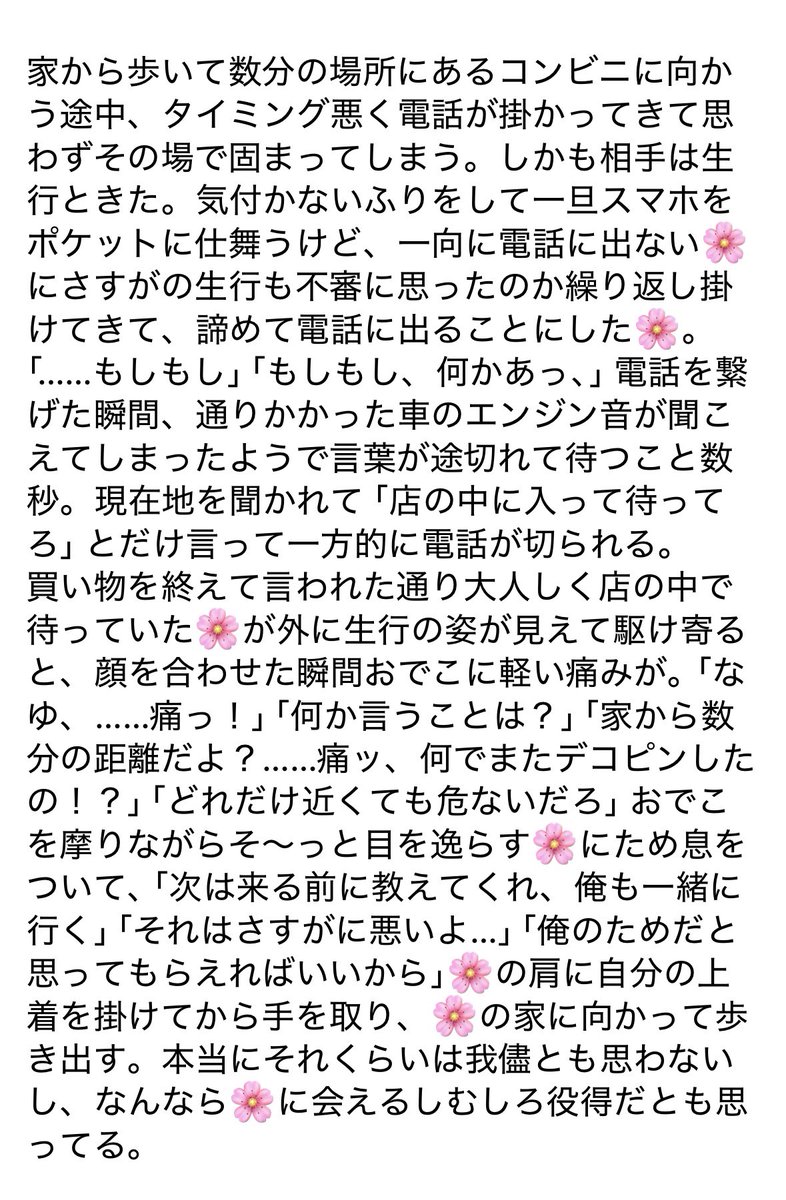 家から歩いて数分の場所にあるコンビニに向か
う途中、タイミング悪く電話が掛かってきて思
わずその場で固まってしまう。しかも相手は生
行ときた。気付かないふりをして一旦スマホを
ポケットに仕舞うけど、一向に電話に出ない🌸
にさすがの生行も不審に思ったのか繰り返し掛
けてきて、諦めて電話に出ることにした🌸。
「……もしもし」「もしもし、何かあっ、」電話を繋
げた瞬間、通りかかった車のエンジン音が聞こ
えてしまったようで言葉が途切れて待つこと数
秒。現在地を聞かれて「店の中に入って待って
ろ」とだけ言って一方的に電話が切られる。
買い物を終えて言われた通り大人しく店の中で
待っていた🌸が外に生行の姿が見えて駆け寄る
と、顔を合わせた瞬間おでこに軽い痛みが。「な
ゆ、……痛っ！」「何か言うことは？」「家から数
分の距離だよ？……痛ッ、何でまたデコピンした
の！？」「どれだけ近くても危ないだろ」おでこ
を摩りながらそ〜っと目を逸らす🌸にため息を
ついて、「次は来る前に教えてくれ、俺も一緒に
行く」「それはさすがに悪いよ…」「俺のためだと
思ってもらえればいいから」🌸の肩に自分の上
着を掛けてから手を取り、🌸の家に向かって歩
き出す。本当にそれくらいは我儘とも思わない
し、なんなら🌸に会えるしむしろ役得だとも思
ってる。